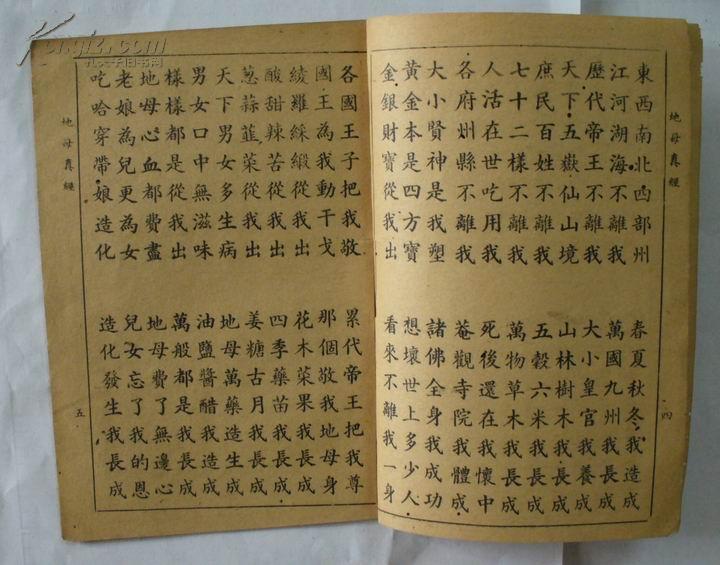 地母真經
四
東西南北四部州 春夏秋冬我造成
江河湖海不離我 萬國九州我長成
歷代帝王不離我 大小皇官我養成
天下五嶽仙山境 山林樹木我長成
庶民百姓不離我 五穀六米我長成
七十二樣不離我 萬物草木我長成
人活在世吃用我 死後還在我懷中
各府州縣不離我 菴觀寺院我體成
大小賢神是我塑 諸佛全身我成功
黃金本是四方寶 想壞世上多少人
金銀財寶從我出 看來不離我一身
各國王子把我敬 累代帝王把我尊
國王為我動干戈 那個敬我地母身
綾羅綵緞從我出 花木菜果我長成
酸甜辣苦從我出 四季藥苗我長成
蔥蒜韮菜從我出 姜糖古月我長成
天下男女多生病 地母萬藥造生成
男女口中無滋味 油鹽醬醋我造成
樣樣都是從我出 萬般都是我長成
地母心血都費盡 地母費了無邊心
老娘為兒更為女 兒女忘了我的恩
吃哈穿帶娘造化 造化發生我長成
地母真經
五
孔夫子旧书网